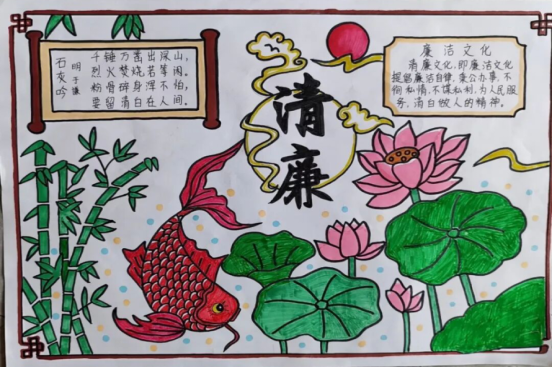 石灰吟
明 于谦
千锤万凿出深山，
烈火焚烧若等闲。
粉骨碎身浑不怕，
要留清白在人间。
清廉
廉洁文化
清廉文化，即廉洁文化
提倡廉洁自律，秉公办事，不
徇私情，不谋私利，为人民服
务，清白做人的精神。